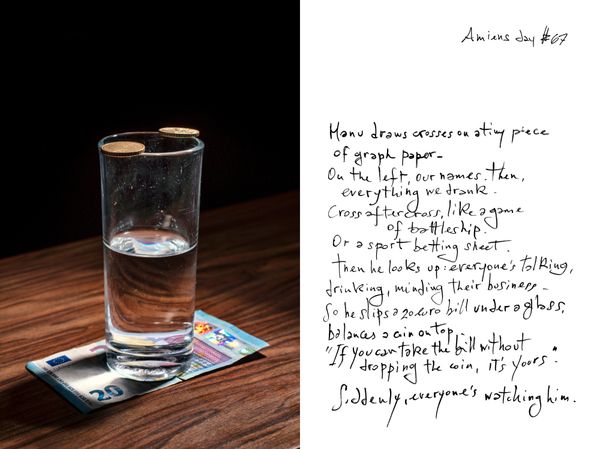 Amiens day #67
Manu draws crosses on a tiny piece
of graph paper.
On the left, our names. Then,
everything we drank.
Cross after cross, like a game
of battleship.
Or a sport betting sheet.
Then he looks up: everyone's talking,
drinking, minding their business.
So he slips a 20-euro bill under a glass,
balances a coin on top.
"If you can take the bill without
dropping the coin, it's yours".
Suddenly, everyone's watching him.
20